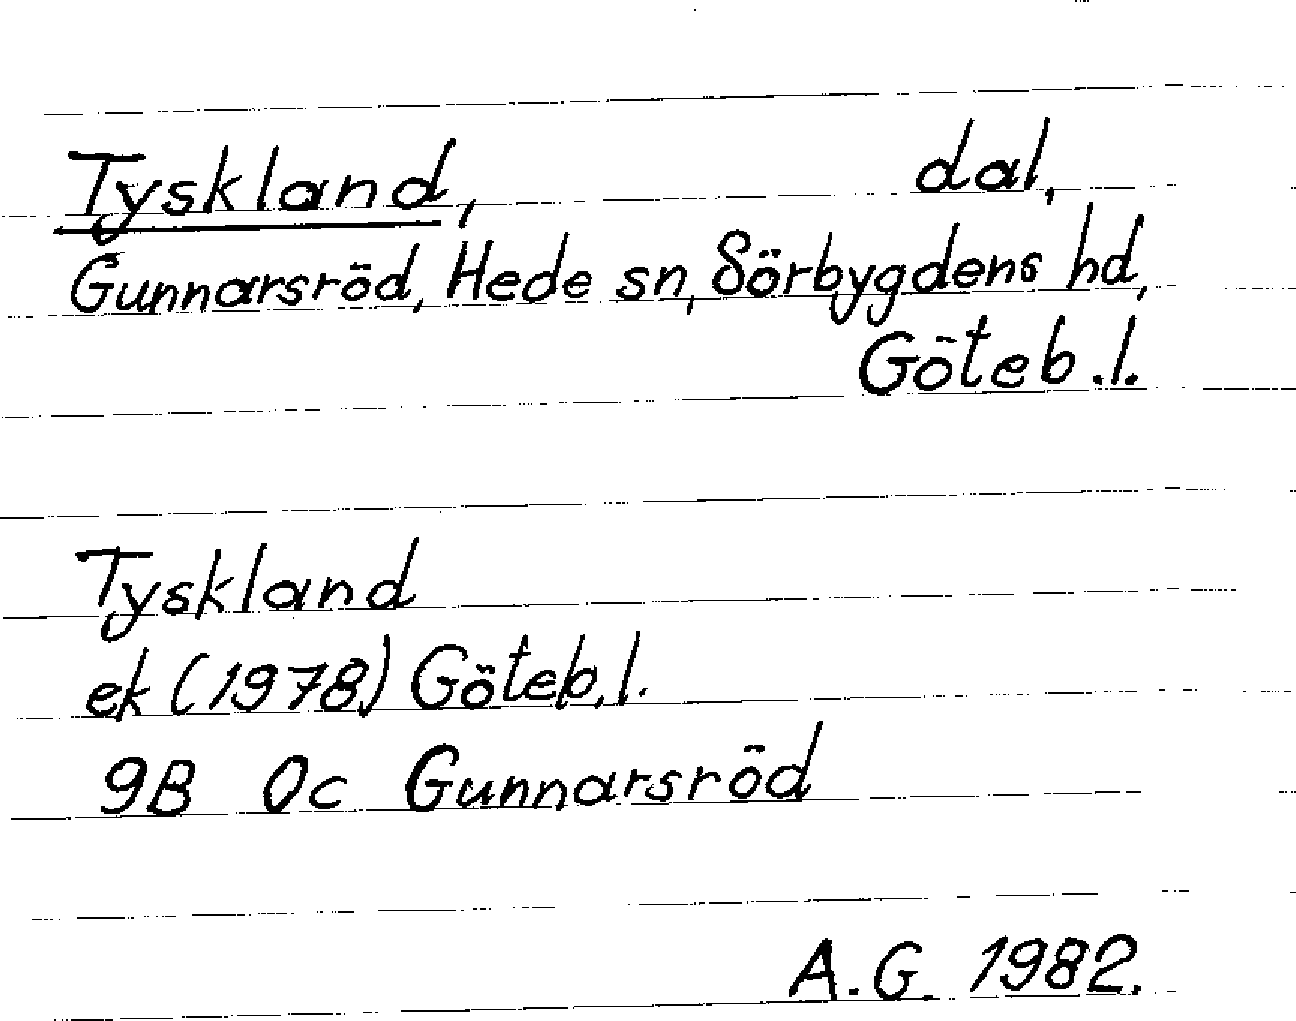 Tyskland, dal,
Gunnarsröd, Hede sn, Sörbygdens hd,
Göteb.l.
Tyskland
ek (1978) Göteb.l.
9B 0c Gunnarsröd
A.G. 1982.